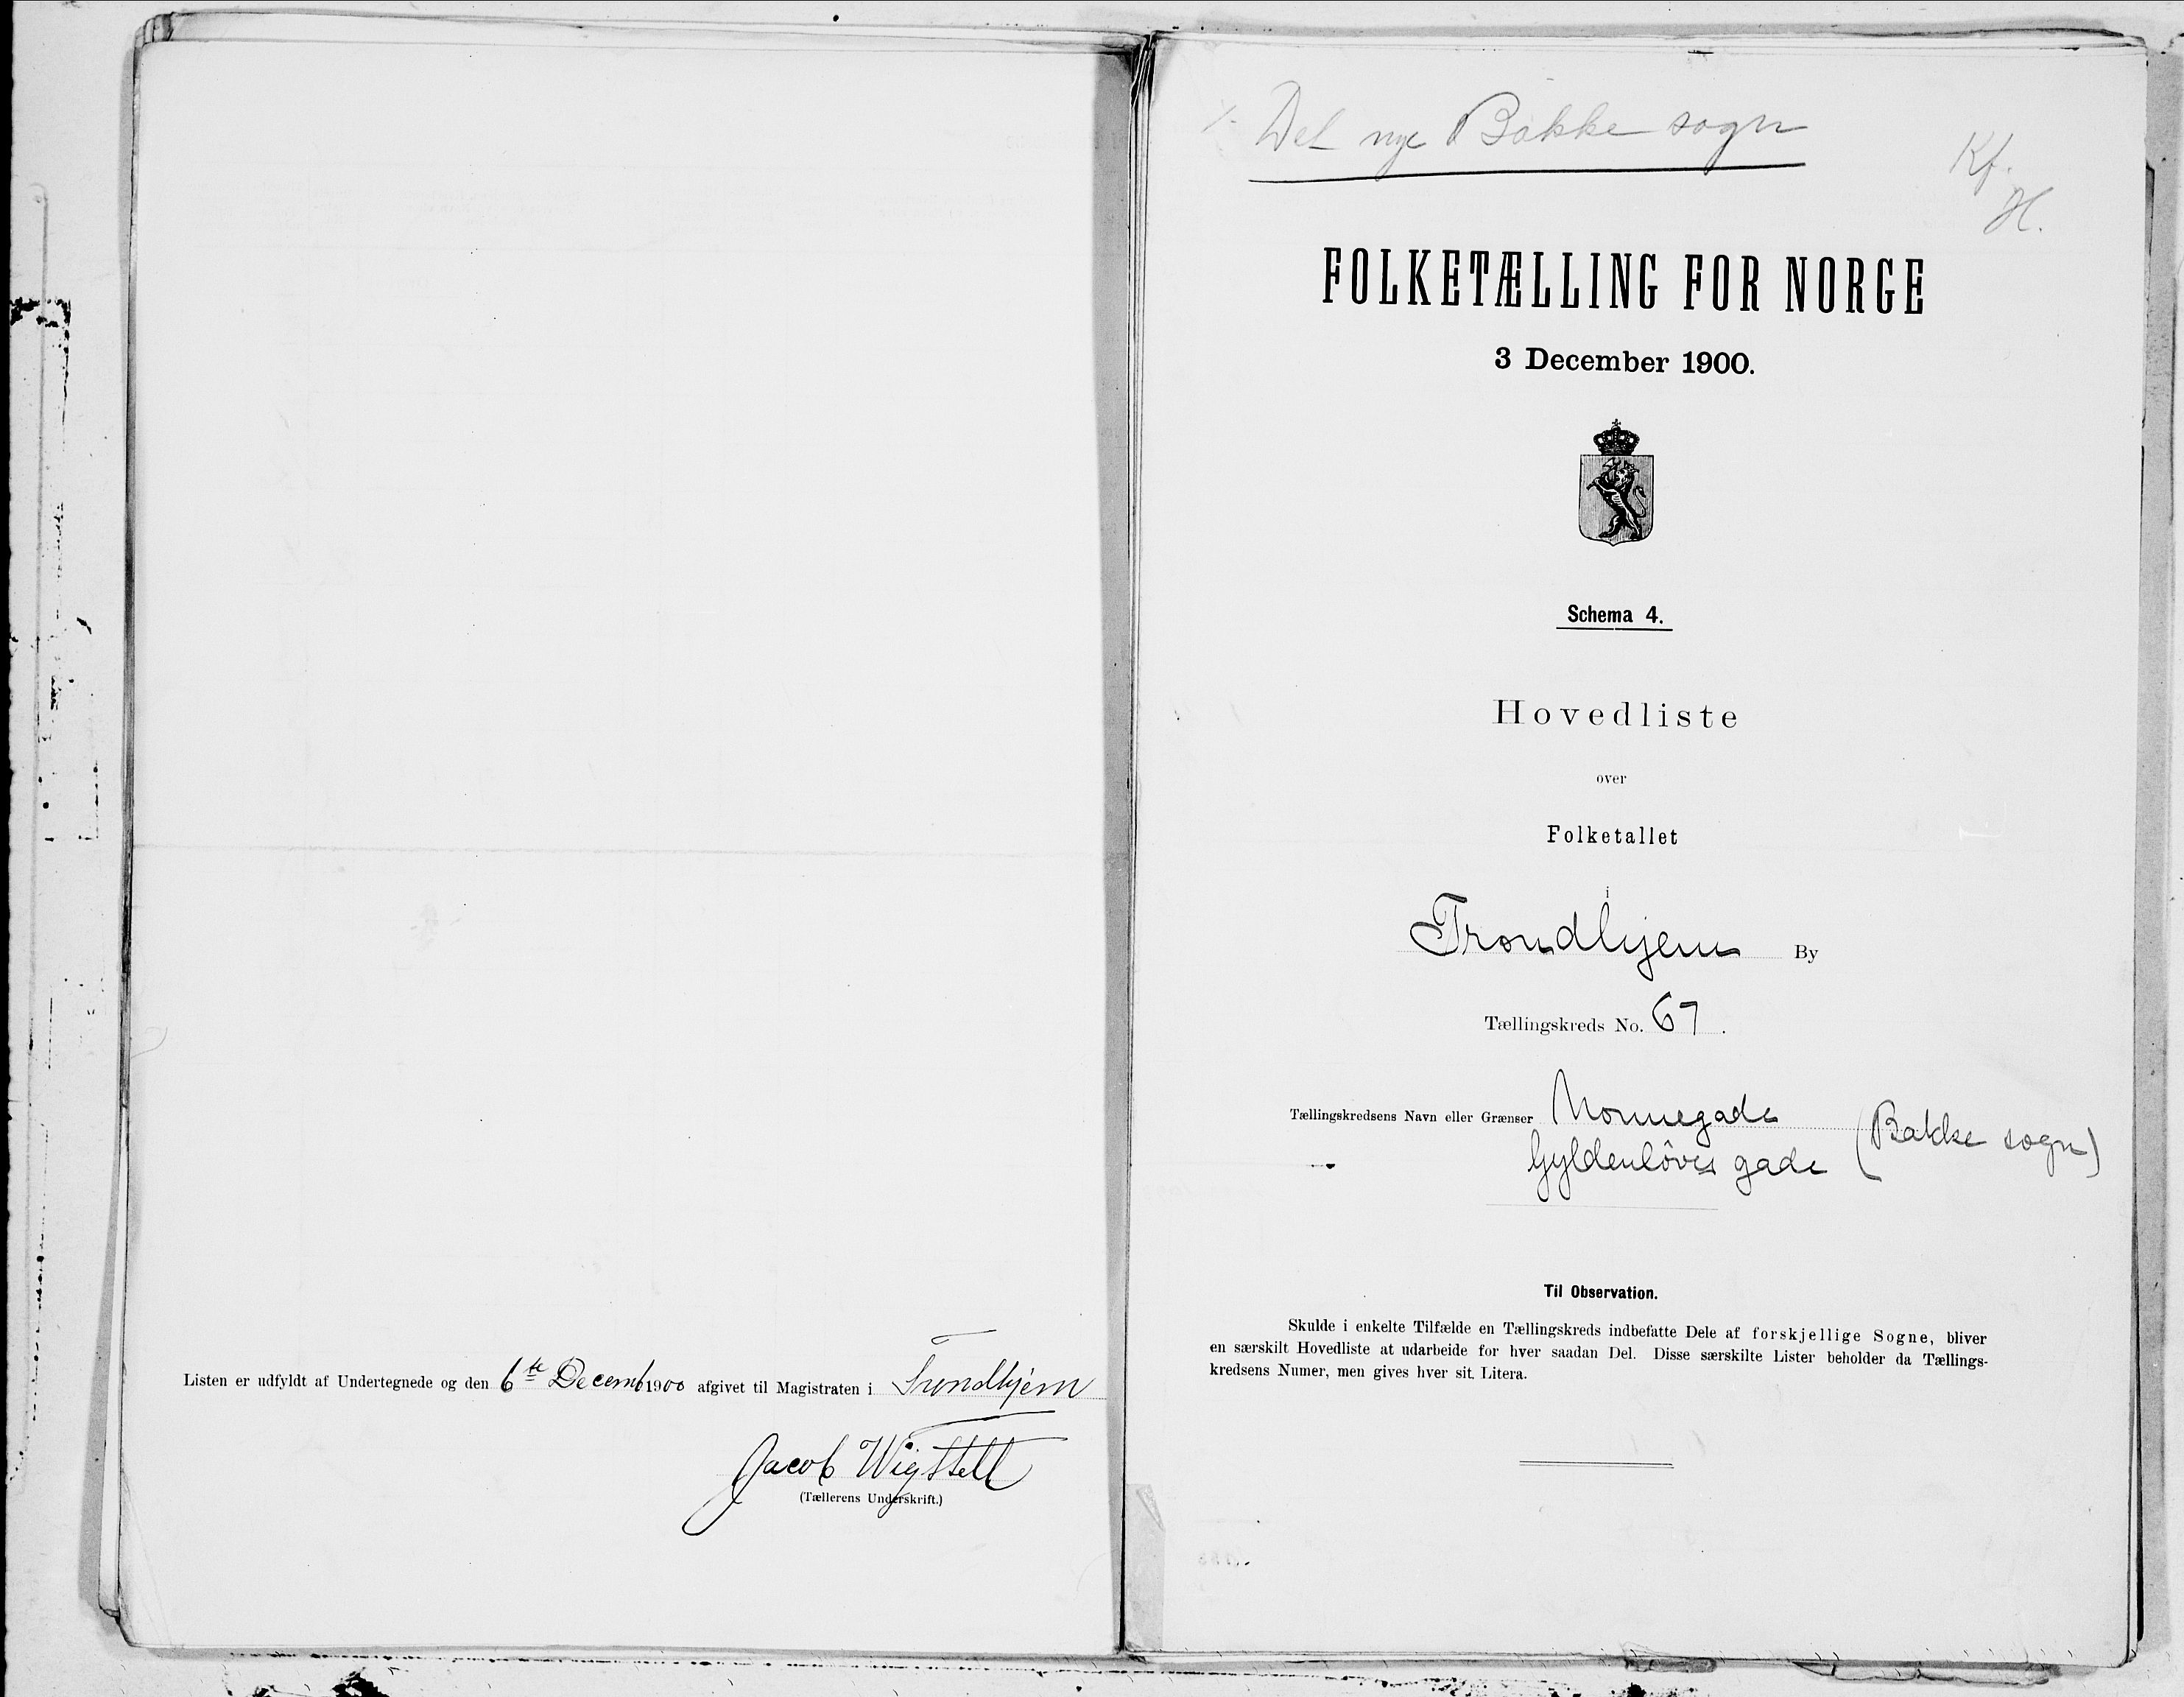 Listen er udfyldt af Undertegnede og den 6te Decemb 1900 afgivet til Magistraten i Trondhjem
Jacob Wigstell
(Tællerens Underskrift.)
Det nye Bakke sogn
Kf.
H.
FOLKETÆLLING FOR NORGE
3 December 1900.
Schema 4.
Hovedliste
over
Folketallet
i
Trondhjem By
Tællingskreds No. 67.
Tællingskredsens Navn eller Grænser Nonnegade
Gyldenløves gade (Bakke sogn)
Til Observation.
Skulde i enkelte Tilfælde en Tællingskreds indbefatte Dele af forskjellige Sogne, bliver
en særskilt Hovedliste at udarbeide for hver saadan Del. Disse særskilte Lister beholder da Tællings-
kredsens Numer, men gives hver sit. Litera.